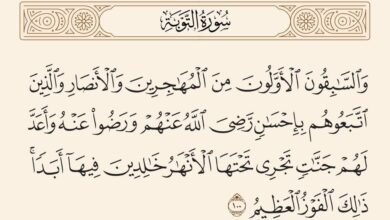 سُورَةُ التَّوْبَةِ
وَالسَّابِقُونَ الْأَوَّلُونَ مِنَ الْمُهَاجِرِينَ وَالْأَنصَارِ وَالَّذِينَ
اتَّبَعُوهُم بِإِحْسَانٍ رَّضِيَ اللَّهُ عَنْهُمْ وَرَضُوا عَنْهُ وَأَعَدَّ
لَهُمْ جَنَّاتٍ تَجْرِي تَحْتَهَا الْأَنْهَارُ خَالِدِينَ فِيهَا أَبَدًا ۚ
ذَٰلِكَ الْفَوْزُ الْعَظِيمُ ١٠٠